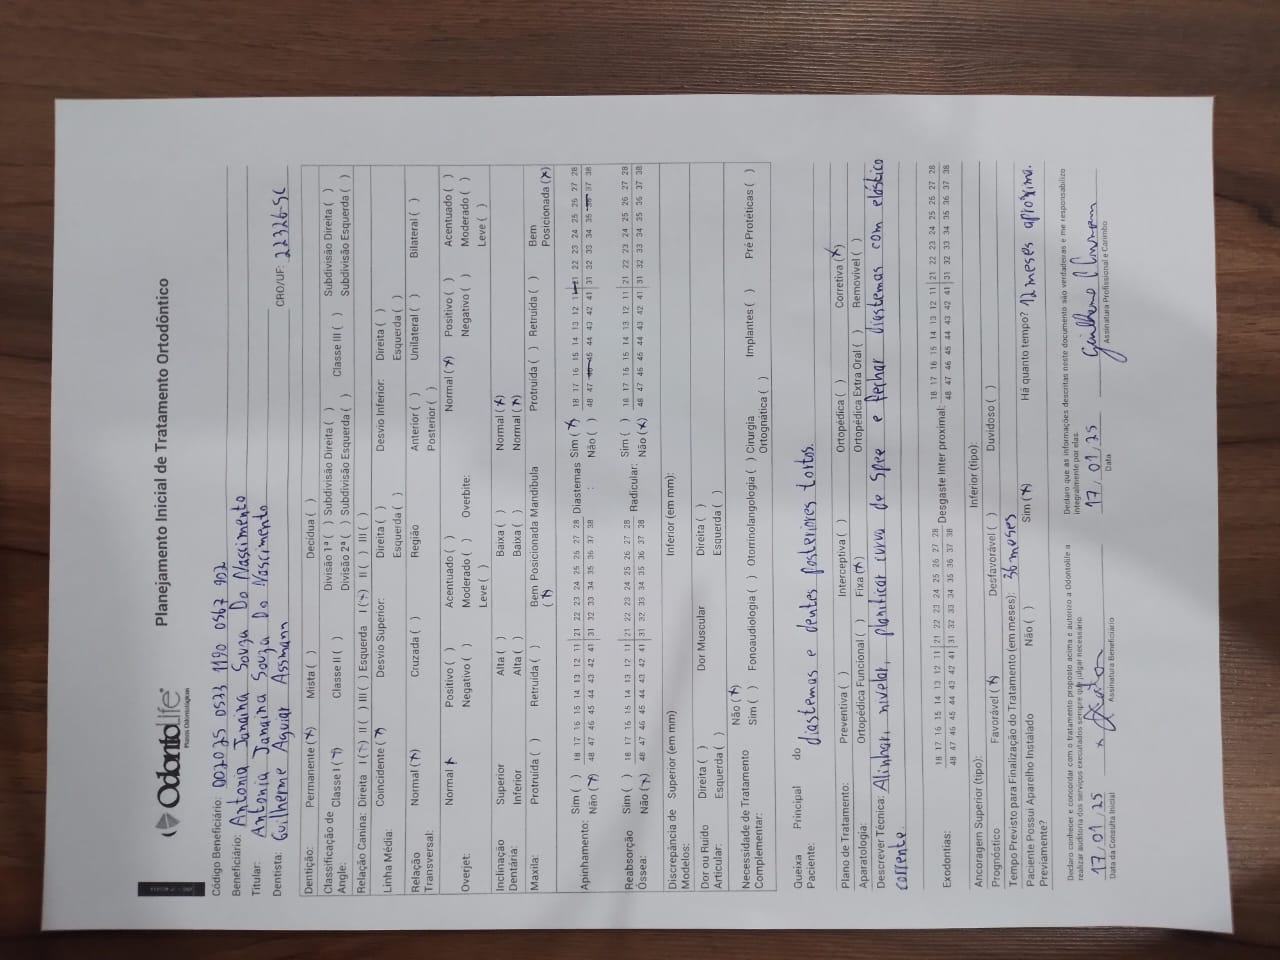 OdontoLife®
Planos Odontológicos
Planejamento Inicial de Tratamento Ortodôntico
Código Beneficiário: 002025 0533 1190 0567 902
Beneficiário: Antonia Janaina Souza Do Nascimento
Titular: Antonia Janaina Souza Do Nascimento
Dentista: Guilherme Aguiar Assmann CRO/UF: 22326-SC
Dentição: Permanente (x) Mista ( ) Decídua ( )
Classificação de Angle: Classe I (x) Classe II ( ) Divisão 1ª ( ) Subdivisão Direita ( ) Classe III ( ) Subdivisão Direita ( )
Divisão 2ª ( ) Subdivisão Esquerda ( ) Subdivisão Esquerda ( )
Relação Canina: Direita I (x) II ( ) III ( ) Esquerda I (x) II ( ) III ( )
Linha Média: Coincidente (x) Desvio Superior: Direita ( ) Desvio Inferior: Direita ( )
Esquerda ( ) Esquerda ( )
Relação Transversal: Normal (x) Cruzada ( ) Região Anterior ( ) Unilateral ( ) Bilateral ( )
Posterior ( )
Overjet: Normal x Positivo ( ) Acentuado ( ) Overbite: Normal (x) Positivo ( ) Acentuado ( )
Negativo ( ) Moderado ( ) Negativo ( ) Moderado ( )
Leve ( ) Leve ( )
Inclinação Dentária: Superior Alta ( ) Baixa ( ) Normal (x)
Inferior Alta ( ) Baixa ( ) Normal (x)
Maxila: Protruída ( ) Retruída ( ) Bem Posicionada (x) Mandíbula Protruída ( ) Retruída ( ) Bem Posicionada (x)
Apinhamento: Sim ( ) 18 17 16 15 14 13 12 11 | 21 22 23 24 25 26 27 28 Diastemas : Sim (x) 18 17 16 15 14 13 12 11 21 22 23 24 25 26 27 28
Não (x) 48 47 46 45 44 43 42 41 | 31 32 33 34 35 36 37 38 Não ( ) 48 47 46 45 44 43 42 41 | 31 32 33 34 35 36 37 38
Reabsorção Óssea: Sim ( ) 18 17 16 15 14 13 12 11 | 21 22 23 24 25 26 27 28 Radicular: Sim ( ) 18 17 16 15 14 13 12 11 | 21 22 23 24 25 26 27 28
Não (x) 48 47 46 45 44 43 42 41 | 31 32 33 34 35 36 37 38 Não (x) 48 47 46 45 44 43 42 41 | 31 32 33 34 35 36 37 38
Discrepância de Modelos: Superior (em mm) Inferior (em mm):
Dor ou Ruído Articular: Direita ( ) Dor Muscular Direita ( )
Esquerda ( ) Esquerda ( )
Necessidade de Tratamento Complementar: Não (x)
Sim ( ) Fonoaudiologia ( ) Otorrinolangologia ( ) Cirurgia Ortognática ( ) Implantes ( ) Pré Protéticas ( )
Queixa Principal do Paciente: diastemas e dentes posteriores tortos.
Plano de Tratamento: Preventiva ( ) Interceptiva ( ) Ortopédica ( ) Corretiva (x)
Aparatologia: Ortopédica Funcional ( ) Fixa (x) Ortopédica Extra Oral ( ) Removível ( )
Descrever Técnica: Alinhar, nivelar, planificar curva de Spee e fechar diastemas com elástico
corrente
Exodontias: 18 17 16 15 14 13 12 11 | 21 22 23 24 25 26 27 28 Desgaste Inter proximal: 18 17 16 15 14 13 12 11 | 21 22 23 24 25 26 27 28
48 47 46 45 44 43 42 41 | 31 32 33 34 35 36 37 38 48 47 46 45 44 43 42 41 | 31 32 33 34 35 36 37 38
Ancoragem Superior (tipo): Inferior (tipo):
Prognóstico Favorável (x) Desfavorável ( ) Duvidoso ( )
Tempo Previsto para Finalização do Tratamento (em meses): 36 meses
Paciente Possui Aparelho Instalado Previamente? Não ( ) Sim (x) Há quanto tempo? 12 meses aproxima.
Declaro conhecer e concordar com o tratamento proposto acima e autorizo a Odontolife a
realizar auditoria dos serviços executados sempre que julgar necessário
Declaro que as informações descritas neste documento são verdadeiras e me responsabilizo
integralmente por elas.
17 / 01 / 25 x
Data da Consulta Inicial Assinatura Beneficiário
17 / 01 / 25 Guilherme
Data Assinatura Profissional e Carimbo